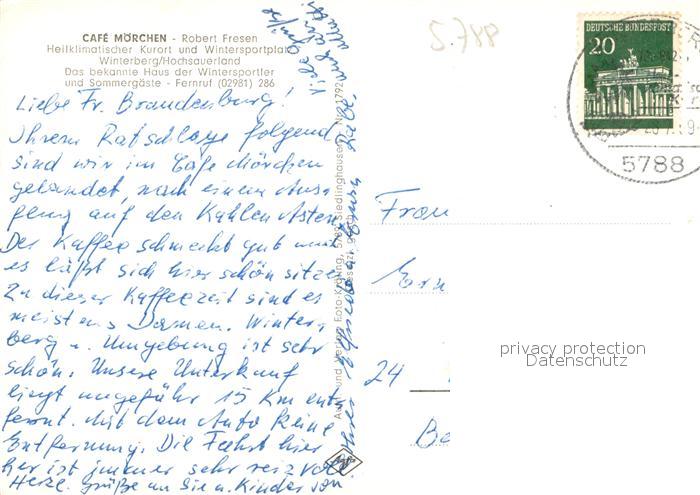 CAFÉ MÖRCHEN - Robert Fresen
Heilklimatischer Kurort und Wintersportplatz
Winterberg/Hochsauerland
Das bekannte Haus der Wintersportler
und Sommergäste - Fernruf (02981) 286
Liebe Fr. Brandenburg!
Ihrem Ratschlage folgend
sind wir im Cafe Mörchen
gelandet, nach einem Aus-
flug auf den Kahlen Asten
Der Kaffee schmeckt gut und
es läßt sich hier schön sitzen
Zu dieser Kaffeezeit sind es
meistens Damen. Winter-
berg u. Umgebung ist sehr
schön. Unsere Unterkunft
liegt ungefähr 15 Km ent-
fernt. Mit dem Auto keine
Entfernung. Die Fahrt hier
her ist immer sehr reizvoll.
Herzl. Grüße an Sie u. Kinder von
Viele Grüße
auch an
5.788
DEUTSCHE BUNDESPOST
20
5788
Frau
24
Be
privacy protection
Datenschutz